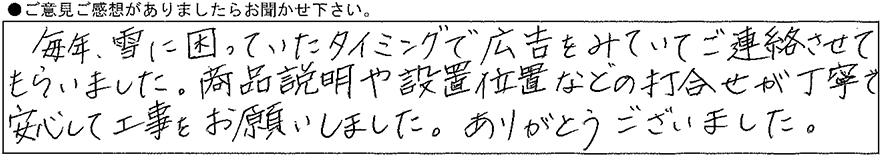 ●ご意見ご感想がありましたらお聞かせ下さい。
毎年、雪に困っていたタイミングで広告をみていてご連絡させて
もらいました。商品説明や設置位置などの打合せが丁寧で
安心して工事をお願いしました。ありがとうございました。